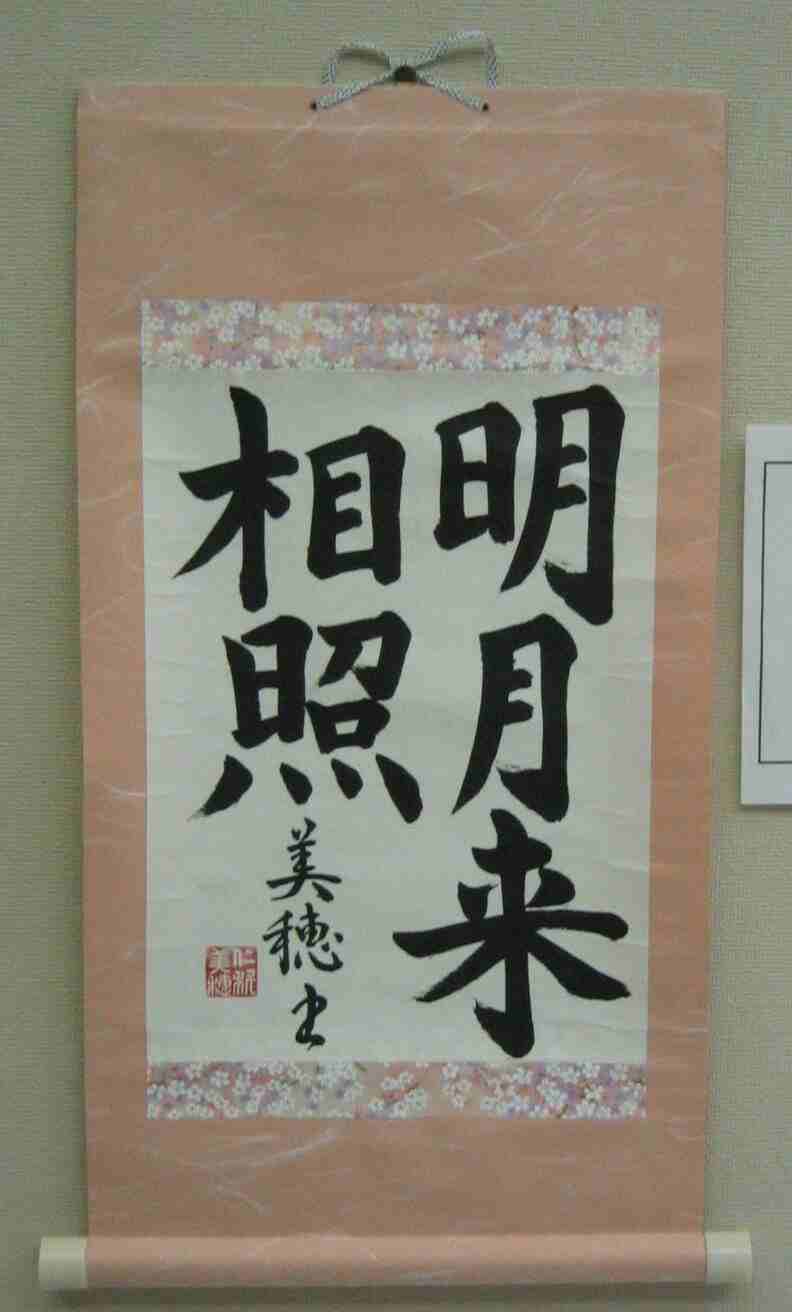 明月来
相照
美穂書